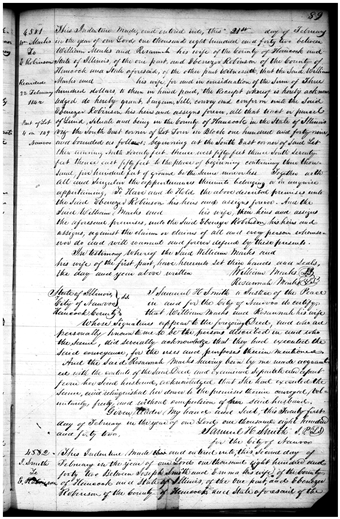 59
4581
Wm Marks
To
E Robinson
Recorded
22 February
1842
Part of Lot
4 in 149
Nauvoo
This Indenture, Made, and entered into, this 21st day of February
in the year of our Lord, one thousand eight hundred and forty two between
William Marks and Rosannah his wife of the County of Hancock and
State of Illinois, of the one part, and Ebenezer Robinson of the County of
Hancock and State aforesaid, of the other part, Witnesseth, that the Said William
Marks and his wife, for and in consideration of the Sum of Three
hundred dollars, to them in hand paid, the receipt whereof is hereby acknow
ledged do hereby grant, bargain, sell, convey and confirm unto the Said
Ebenezer Robinson his heirs and assigns forever, all that tract or parcel
of Land, situate and being in the County of Hancock, in the State of Illinois
viz: the South East corner of Lot Four in Block one hundred and forty nine,
and bounded as follows: Beginning at the South East corner of Said Lot
thence running North Seventy feet thence west fifty feet thence South Seventy
feet thence east fifty feet to the place of beginning containing three thous
and, five hundred feet of ground be the same more or less Together with
all and Singular the appurtenances thereunto belonging or in anywise
appertaining, To Have and to Hold the above described premises unto
the Said Ebenezer Robinson his heirs and assigns forever. And the
Said William Marks and his wife, their heirs and assigns
the aforesaid premises, unto the Said Ebenezer Robinson, his heirs and
assigns, against the claim or claims of all and every person whomso-
ever do and will warrant and forever defend by these presents.
In Testimony whereof the Said William Marks and
his wife of the first part, have hereunto set their hands and Seals,
the day and year above written William Marks
Rosannah Marks
State of Illinois
City of Nauvoo
Hancock County
I Samuel H Smith a Justice of the Peace
in and for the City of Nauvoo do certify
that William Marks and Rosannah his wife
Whose Signatures appear to the foregoing Deed, and who are
personally known to me to be the persons described in and who
the Same, did severally acknowledge that they had executed the
Said conveyance, for the uses and purposes therein mentioned.
And the Said Rosannah Marks having been by me made acquaint
ed with the contents of the Said Deed, and examined separate and apart
from her Said husband, acknowledged, that She had executed the
Same, and relinquished her dower to the premises therein conveyed, vol-
untarily, freely, and without compulsion of her Said husband.
Given under, My hand and Seal, this Twenty first
day of February in the year of our Lord one thousand eight hundred
and forty two. Samuel H Smith J.P.
for the City of Nauvoo
4582
J. Smith
To
E. Robinson
This Indenture Made this and entered into, this Second day of
February in the year of our Lord one thousand eight hundred and
forty two Between Joseph Smith and Emma his wife of the County
of Hancock and State of Illinois, of the One part, and Ebenezer
Robinson, of the County of Hancock and State aforesaid of the